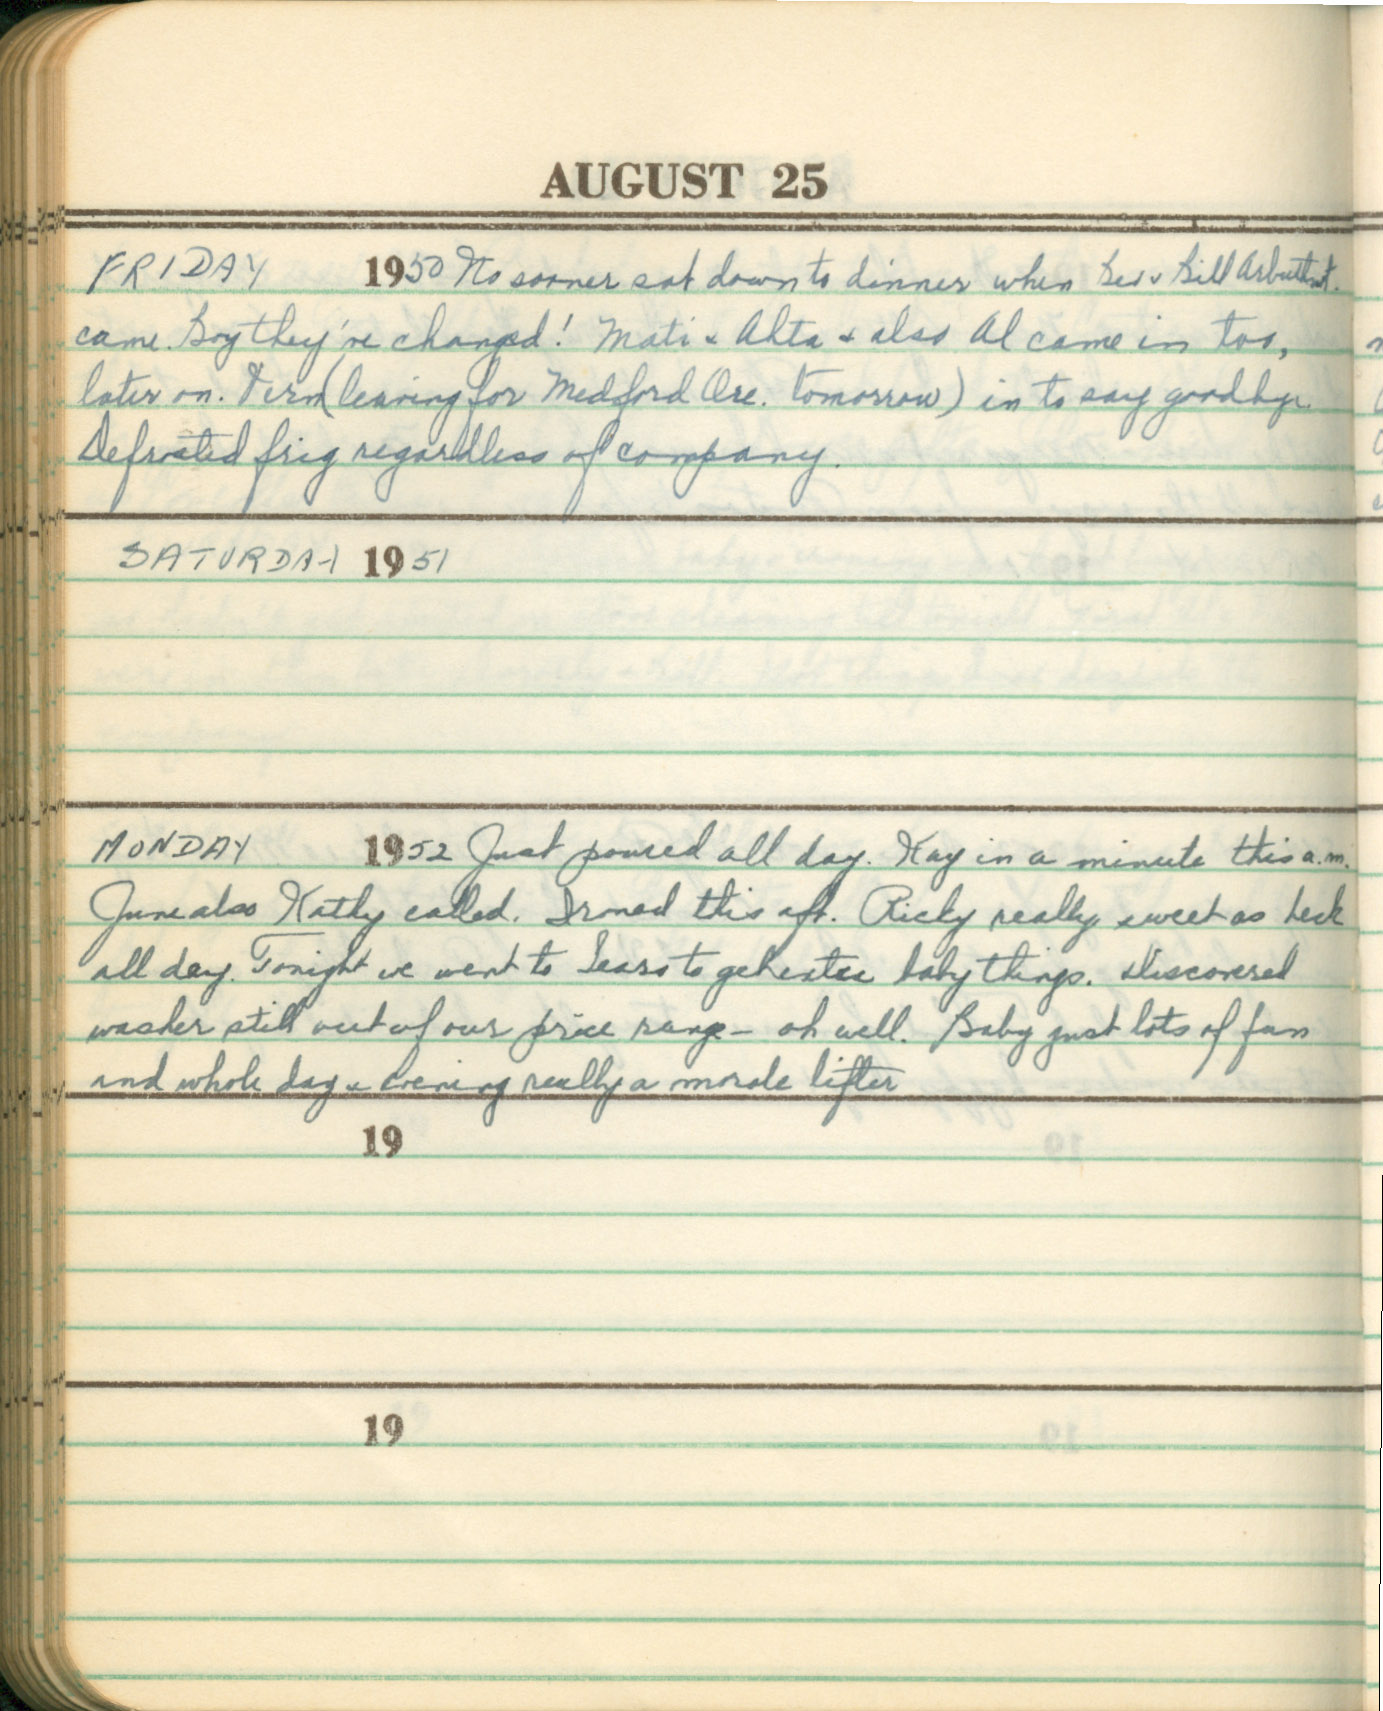 AUGUST 25
FRIDAY 1950 No sooner sat down to dinner when Bev & Bill Arbuthnot.
came. Boy they're changed! Mati & Ahta & also Al came in too,
later on. Fern (leaving for Medford Ore. tomorrow) in to say goodbye.
Defrosted frig regardless of company.
SATURDAY 1951
MONDAY 1952 Just poured all day. Kay in a minute this a.m.
June also Kathy called. Ironed this aft. Ricky really sweet as heck
all day. Tonight we went to Sears to get extra baby things. Discovered
washer still out of our price range - oh well. Baby just lots of fun
and whole day & evening really a morale lifter
19
19